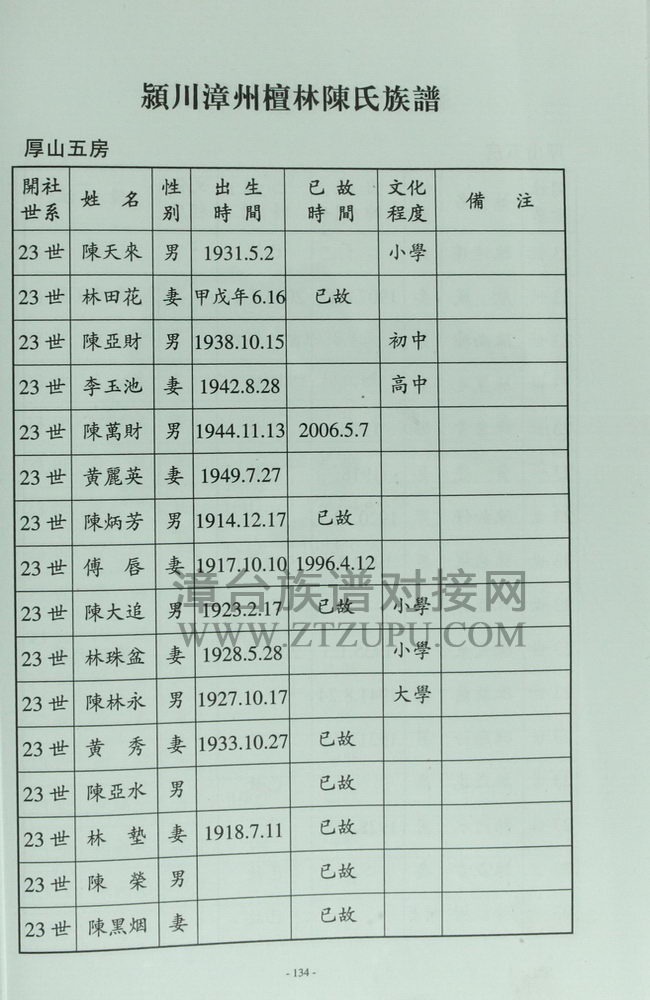 潁川漳州檀林陳氏族譜
厚山五房
開社世系 姓 名 性別 出生時間 已故時間 文化程度 備 注
23世 陳天來 男 1931.5.2 小學
23世 林田花 妻 甲戊年6.16 已故
23世 陳亞財 男 1938.10.15 初中
23世 李玉池 妻 1942.8.28 高中
23世 陳萬財 男 1944.11.13 2006.5.7
23世 黄麗英 妻 1949.7.27
23世 陳炳芳 男 1914.12.17 已故
23世 傅 唇 妻 1917.10.10 1996.4.12
23世 陳大追 男 1923.2.17 已故 小學
23世 林珠盆 妻 1928.5.28 小學
23世 陳林永 男 1927.10.17 大學
23世 黄 秀 妻 1933.10.27 已故
23世 陳亞水 男 已故
23世 林 墊 妻 1918.7.11 已故
23世 陳 榮 男 已故
23世 陳黑烟 妻 已故
漳台族谱对接网
WWW.ZTZUPU.COM
- 134 -